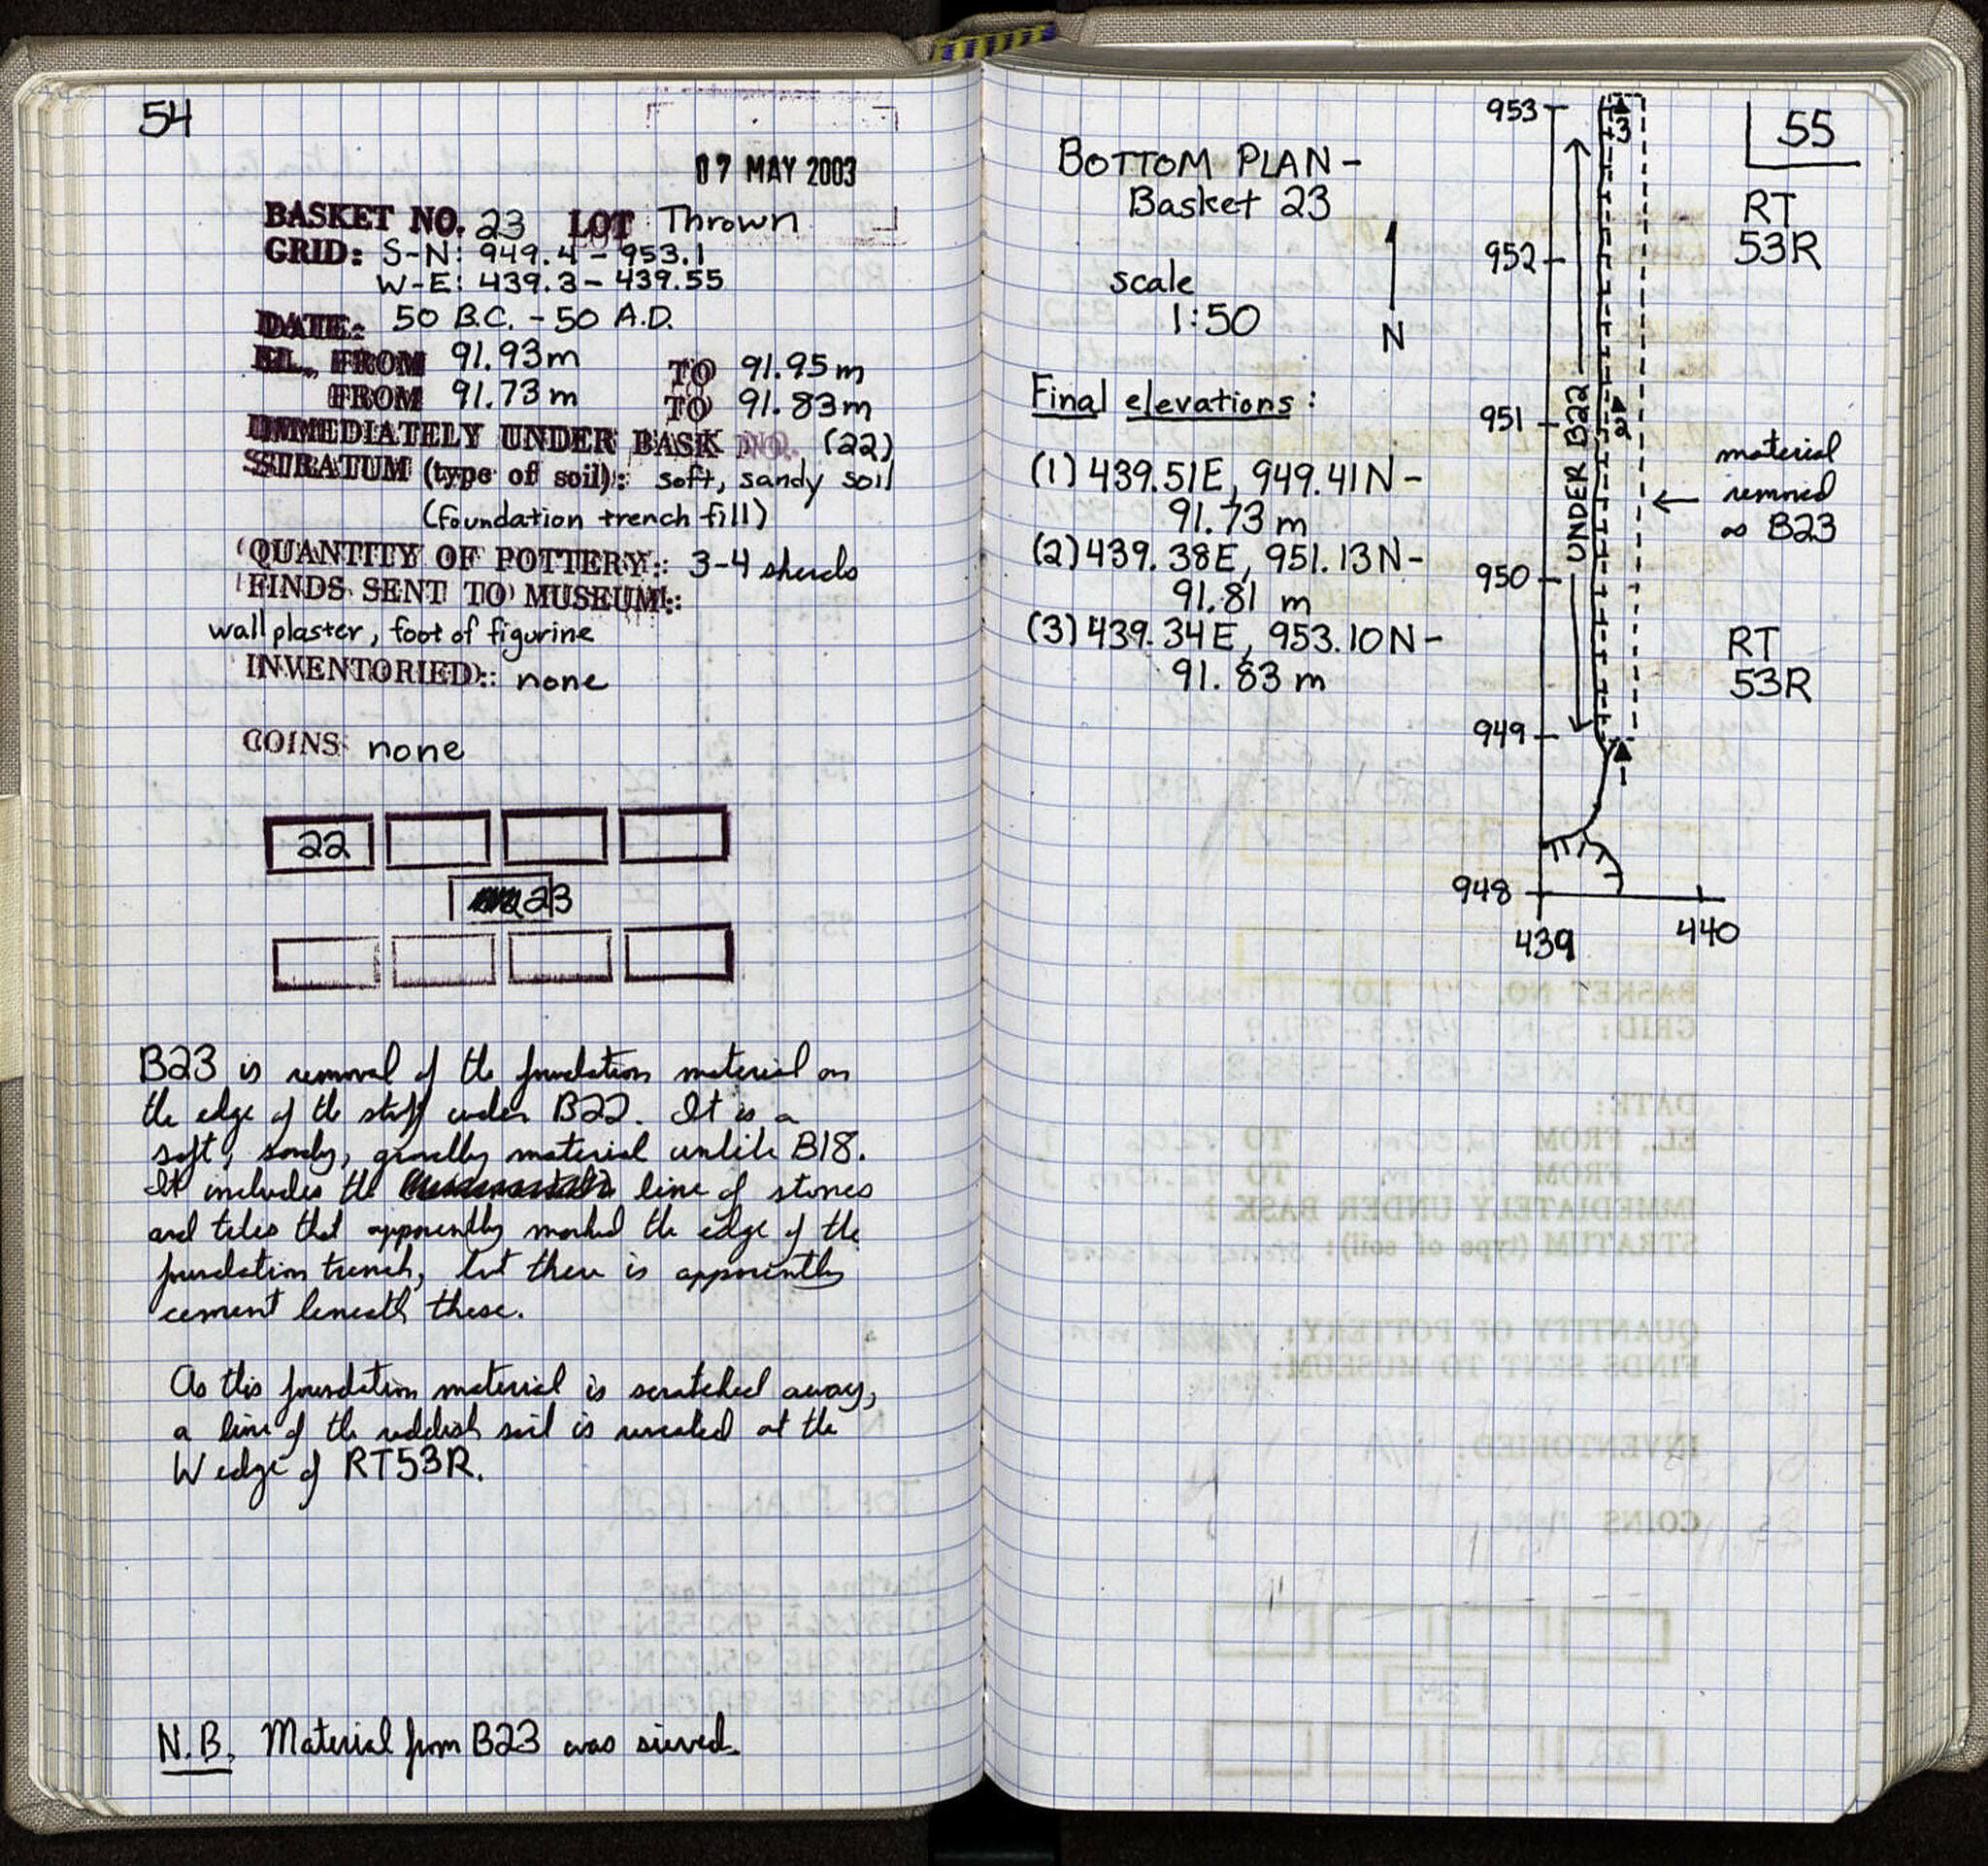 54
07 MAY 2003
BASKET NO. 23 LOT Thrown
GRID: S-N: 949.4 - 953.1
W-E: 439.3 - 439.55
DATE: 50 B.C. - 50 A.D.
EL., FROM 91.93m TO 91.95m
FROM 91.73m TO 91.83m
IMMEDIATELY UNDER BASK NO. (22)
STRATUM (type of soil): soft, sandy soil
(foundation trench fill)
QUANTITY OF POTTERY: 3-4 sherds
FINDS SENT TO MUSEUM:
wall plaster, foot of figurine
INVENTORIED: none
COINS: none
22
23
B23 is removal of the foundation material on
the edge of the stuff under B22. It is a
soft, sandy, gravelly material unlike B18.
It includes the line of stones
and tiles that apparently marked the edge of the
foundation trench, but there is apparently
cement beneath these.
As this foundation material is scratched away,
a line of the reddish soil is revealed at the
W edge of RT53R.
N.B. Material from B23 was sieved.
55
BOTTOM PLAN -
Basket 23
scale
1:50
N
Final elevations:
(1) 439.51E, 949.41N -
91.73 m
(2) 439.38E, 951.13N -
91.81 m
(3) 439.34E, 953.10N -
91.83 m
953
952
951
950
949
948
439
440
UNDER B22
3
2
1
RT
53R
material
removed
as B23
RT
53R